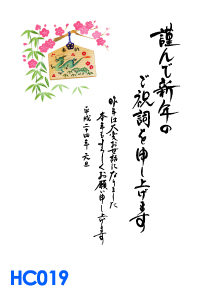 謹んで新年の
ご祝詞を申し上げます
昨年は大変お世話になりました
本年もよろしくお願い申し上げます
平成二十四年 元旦
HC019